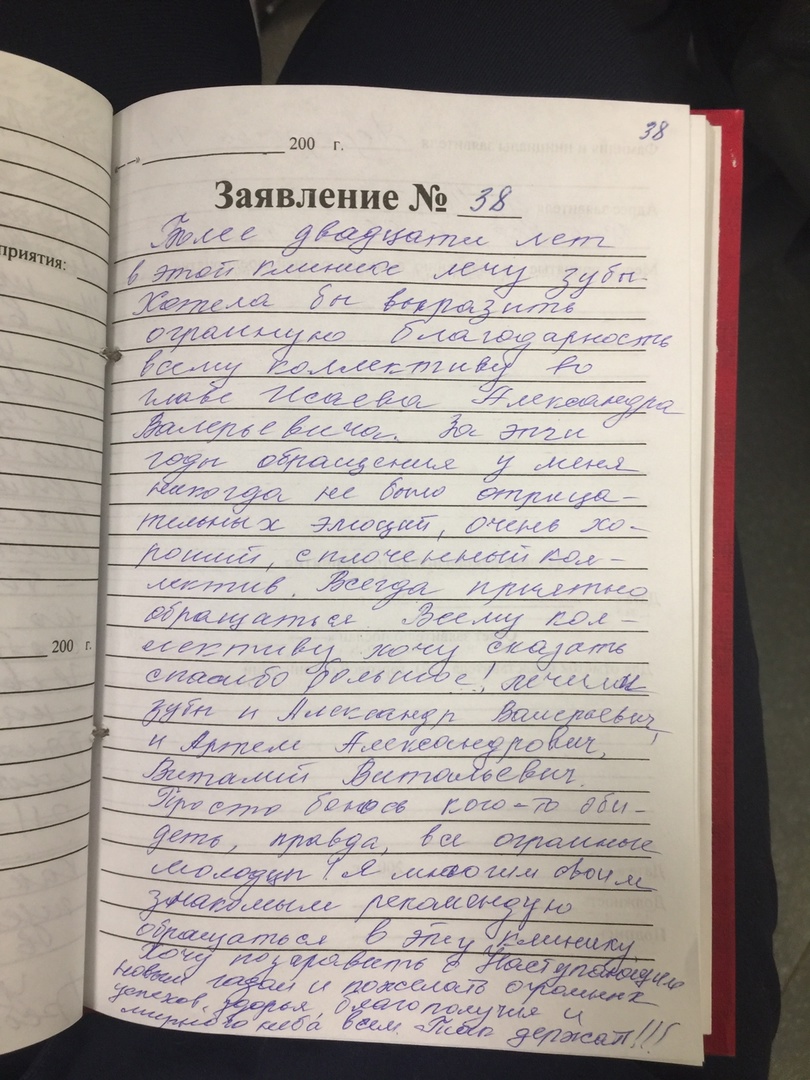 38
200 г.
Заявление № 38
приятия:
Более двадцати лет
в этой клинике лечу зубы.
Хотела бы выразить
огромную благодарность
всему коллективу во
главе Исаева Александра
Валерьевича. За эти
годы обращения у меня
никогда не было отрица-
тельных эмоций, очень хо-
роший, сплоченный кол-
лектив. Всегда приятно
обращаться. Всему кол-
лективу хочу сказать
спасибо большое! лечили
зубы и Александр Валерьевич,
и Артем Александрович,
Виталий Витальевич.
Просто боюсь кого-то оби-
деть, правда, все огромные
молодцы! Я многим своим
200 г.
знакомым рекомендую
обращаться в эту клинику.
Хочу поздравить с Наступающим
новым годом и пожелать огромных
успехов, здоровья, благополучия и
мирного неба всем. Так держать!!!